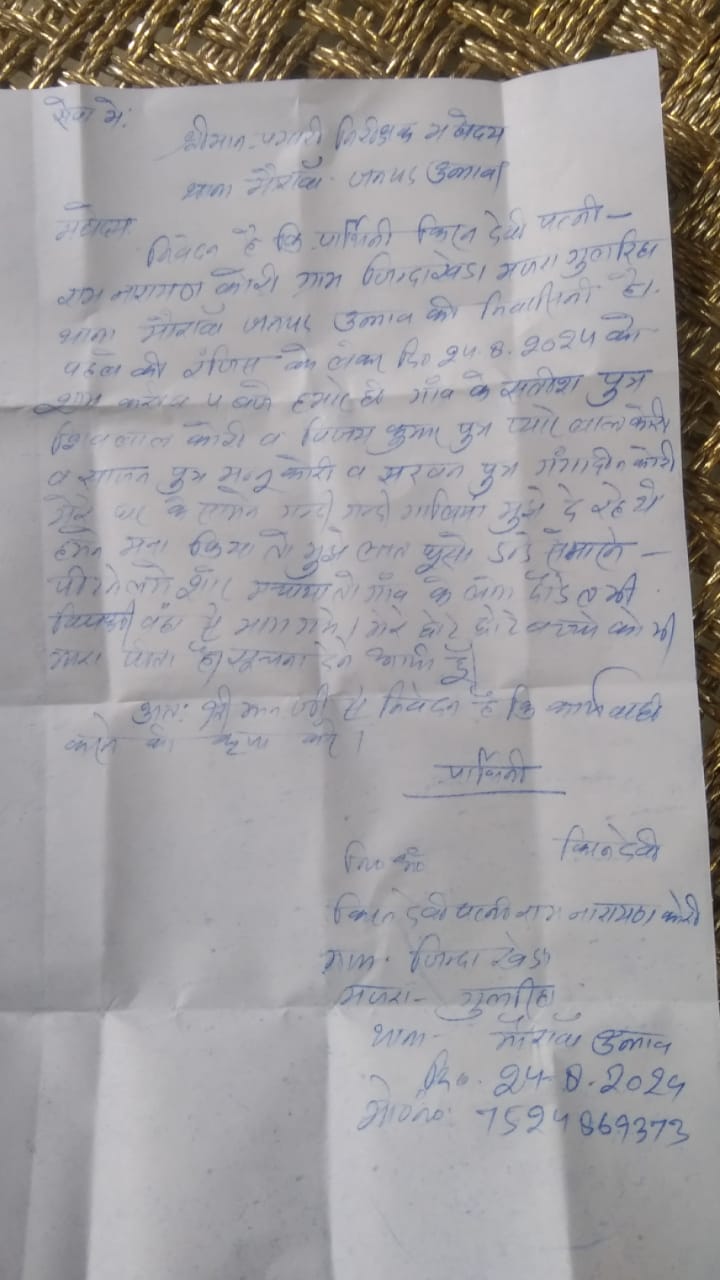 सेवा में:
श्रीमान प्रभारी निरीक्षक महोदय
थाना मौरावाँ जनपद उन्नाव
महोदय
निवेदन है कि प्रार्थिनी किरन देवी पत्नी—
राम नारायण कोरी ग्राम जिन्दाखेडा मजरा गुलरिहा
थाना मौरावाँ जनपद उन्नाव की निवासिनी है।
पहले की रंजिस को लेकर दि० 24.8.2024 को
शाम करीब 4 बजे हमारे ही गाँव के सतीश पुत्र
शिवलाल कोरी व विजय कुमार पुत्र प्यारे लाल कोरी
व साजन पुत्र मन्नू कोरी व सरवन पुत्र गंगादीन कोरी
मेरे घर के सामने गन्दी गन्दी गालियां मुझे दे रहे थे
हमने मना किया तो मुझे लात घूसो डंडे से मारने—
पीटने लगे शोर मचाया तो गाँव के लोग दौडे तभी
विपक्षी वहां से भाग गये। मेरे छोटे छोटे बच्चो को भी
मारा पीटा है। सूचना देने आयी हूँ
अतः श्रीमान जी से निवेदन है कि कार्यवाही
करने की कृपा करें।
प्रार्थिनी
किरन देवी
किरन देवी पत्नी राम नारायण कोरी
ग्राम- जिन्दा खेडा
मजरा- गुलरिहा
थाना- मौरावाँ उन्नाव
दि०. 24-8-2024
मो०नं०: 7524869373